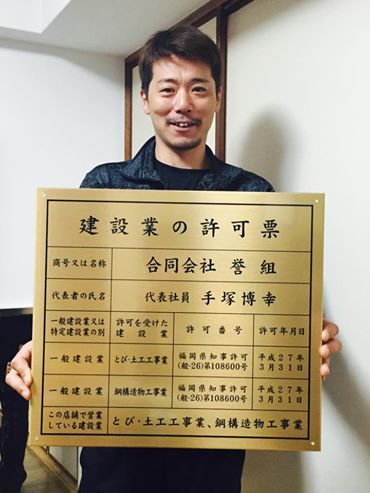 建設業の許可票
商号又は名称 合同会社 誉組
代表者の氏名 代表社員 手塚博幸
一般建設業又は 許可を受けた 許可番号 許可年月日
特定建設業の別 建設業
一般建設業 とび・土工工事業 福岡県知事許可 平成27年
(般-26)第108600号 3月31日
一般建設業 鋼構造物工事業 福岡県知事許可 平成27年
(般-26)第108600号 3月31日
この店舗で営業 とび・土工工事業、鋼構造物工事業
している建設業